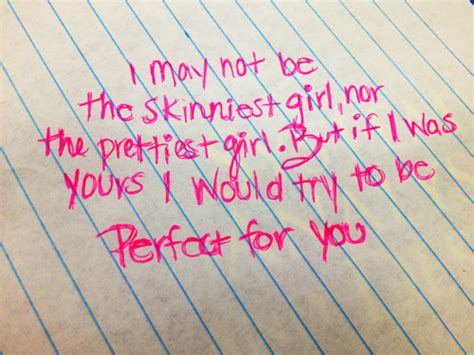 I may not be
the skinniest girl, nor
the prettiest girl. But if I was
yours I would try to be
Perfect for you